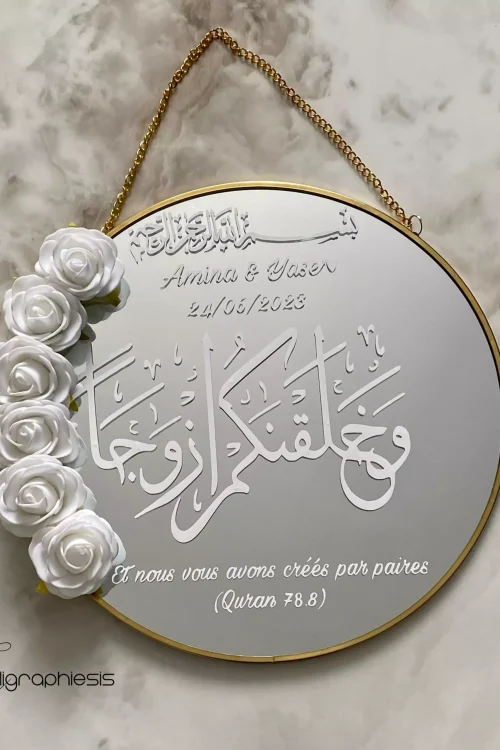 بسم الله الرحمن الرحيم
Amina & Yaser
24/06/2023
وَخَلَقْنَكُمْ أَزْوَجًا
Et nous vous avons créés par paires
(Quran 78.8)
ligraphiesis